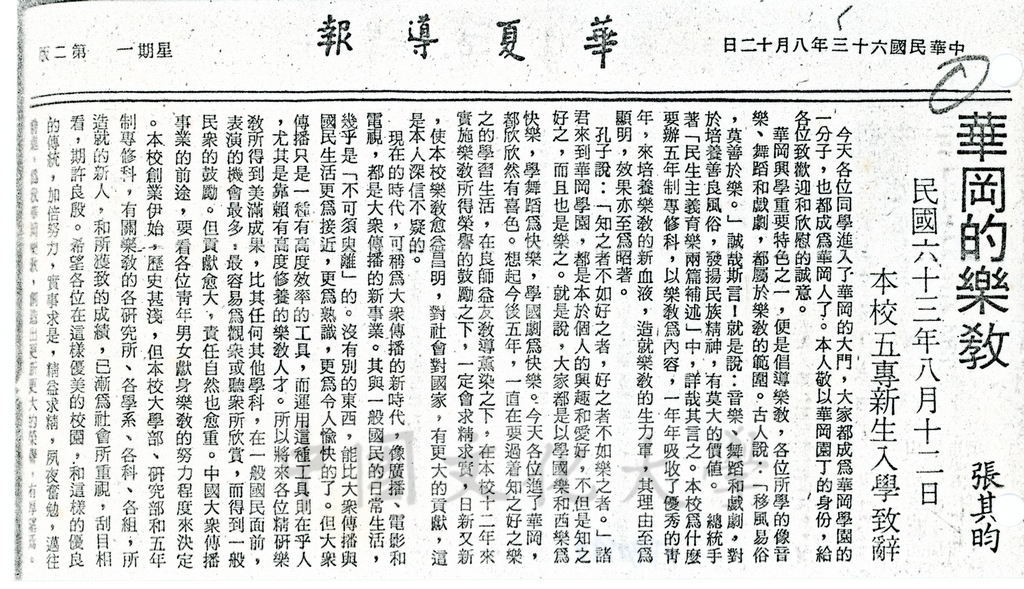 中華民國六十三年八月十二日
華夏導報
星期一
第二版
華岡的樂敎
民國六十三年八月十二日
本校五專新生入學致辭
張其昀
今天各位同學進入了華岡的大門，大家都成爲華岡學園的
一分子，也都成爲華岡人了。本人敬以華岡園丁的身份，給
各位致歡迎和欣慰的誠意。
華岡興學重要特色之一，便是倡導樂敎，各位所學的像音
樂、舞蹈和戲劇，都屬於樂敎的範圍。古人說：「移風易俗
，莫善於樂。」誠哉斯言！就是說：音樂、舞蹈和戲劇，對
於培養善良風俗，發揚民族精神，有莫大的價値。　總統手
著「民生主義育樂兩篇補述」中，詳哉其言之。本校爲什麼
要辦五年制專修科，以樂敎爲內容，一年年吸收了優秀的靑
年，來培養樂敎的新血液，造就樂敎的生力軍，其理由至爲
顯明，效果亦至爲昭著。
孔子說：「知之者不如好之者，好之者不如樂之者。」諸
君來到華岡學園，都是本於個人的興趣和愛好，不但是知之
好之，而且也是樂之。就是說，大家都是以學國樂和西樂爲
快樂，學舞蹈爲快樂，學國劇爲快樂。今天各位進了華岡，
都欣欣然有喜色。想起今後五年，一直在要過着知之好之樂
之的學習生活，在良師益友敎導薰染之下，在本校十二年來
實施樂敎所得榮譽的鼓勵之下，一定會求精求實，日新又新
，使本校樂敎愈益昌明，對社會對國家，有更大的貢獻，這
是本人深信不疑的。
現在的時代，可稱爲大衆傳播的新時代，像廣播、電影和
電視，都是大衆傳播的新事業。其與一般國民的日常生活，
幾乎是「不可須臾離」的。沒有別的東西，能比大衆傳播與
國民生活更爲接近，更爲熟識，更爲令人愉快的了。但大衆
傳播只是一種有高度效率的工具，而運用這種工具則在乎人
，尤其是靠賴有高度修養的樂敎人才。所以將來各位精研樂
敎所得到美滿成果，比其任何其他學科，在一般國民面前，
表演的機會最多，最容易爲觀衆或聽衆所欣賞，而得到一般
民衆的鼓勵。但貢獻愈大，責任自然也愈重。中國大衆傳播
事業的前途，要看各位靑年男女獻身樂敎的努力程度來決定
。本校創業伊始，歷史甚淺，但本校大學部、研究部和五年
制專修科，有關樂敎的各研究所、各學系、各科、各組，所
造就的新人，和所獲致的成績，已漸爲社會所重視，刮目相
看，期許良殷。希望各位在這樣優美的校園，和這樣的優良
的傳統，加倍努力，實事求是，精益求精，夙夜奮勉，邁往
中國文化大學